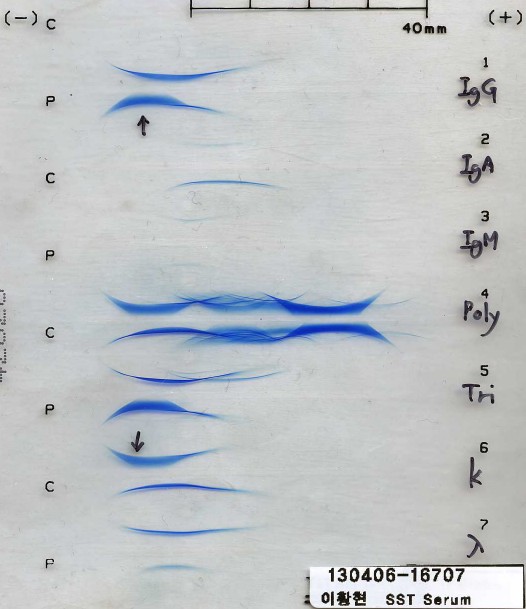 (-) C (+)
40mm
1
IgG
P
2
IgA
C
3
IgM
P
4
Poly
C
5
Tri
P
6
k
C
7
λ
P
130406-16707
이황현 SST Serum